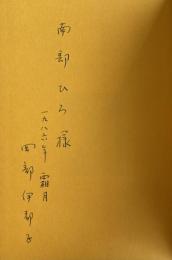 南部ひろ様
一九八六年 霜月
岡部伊都子